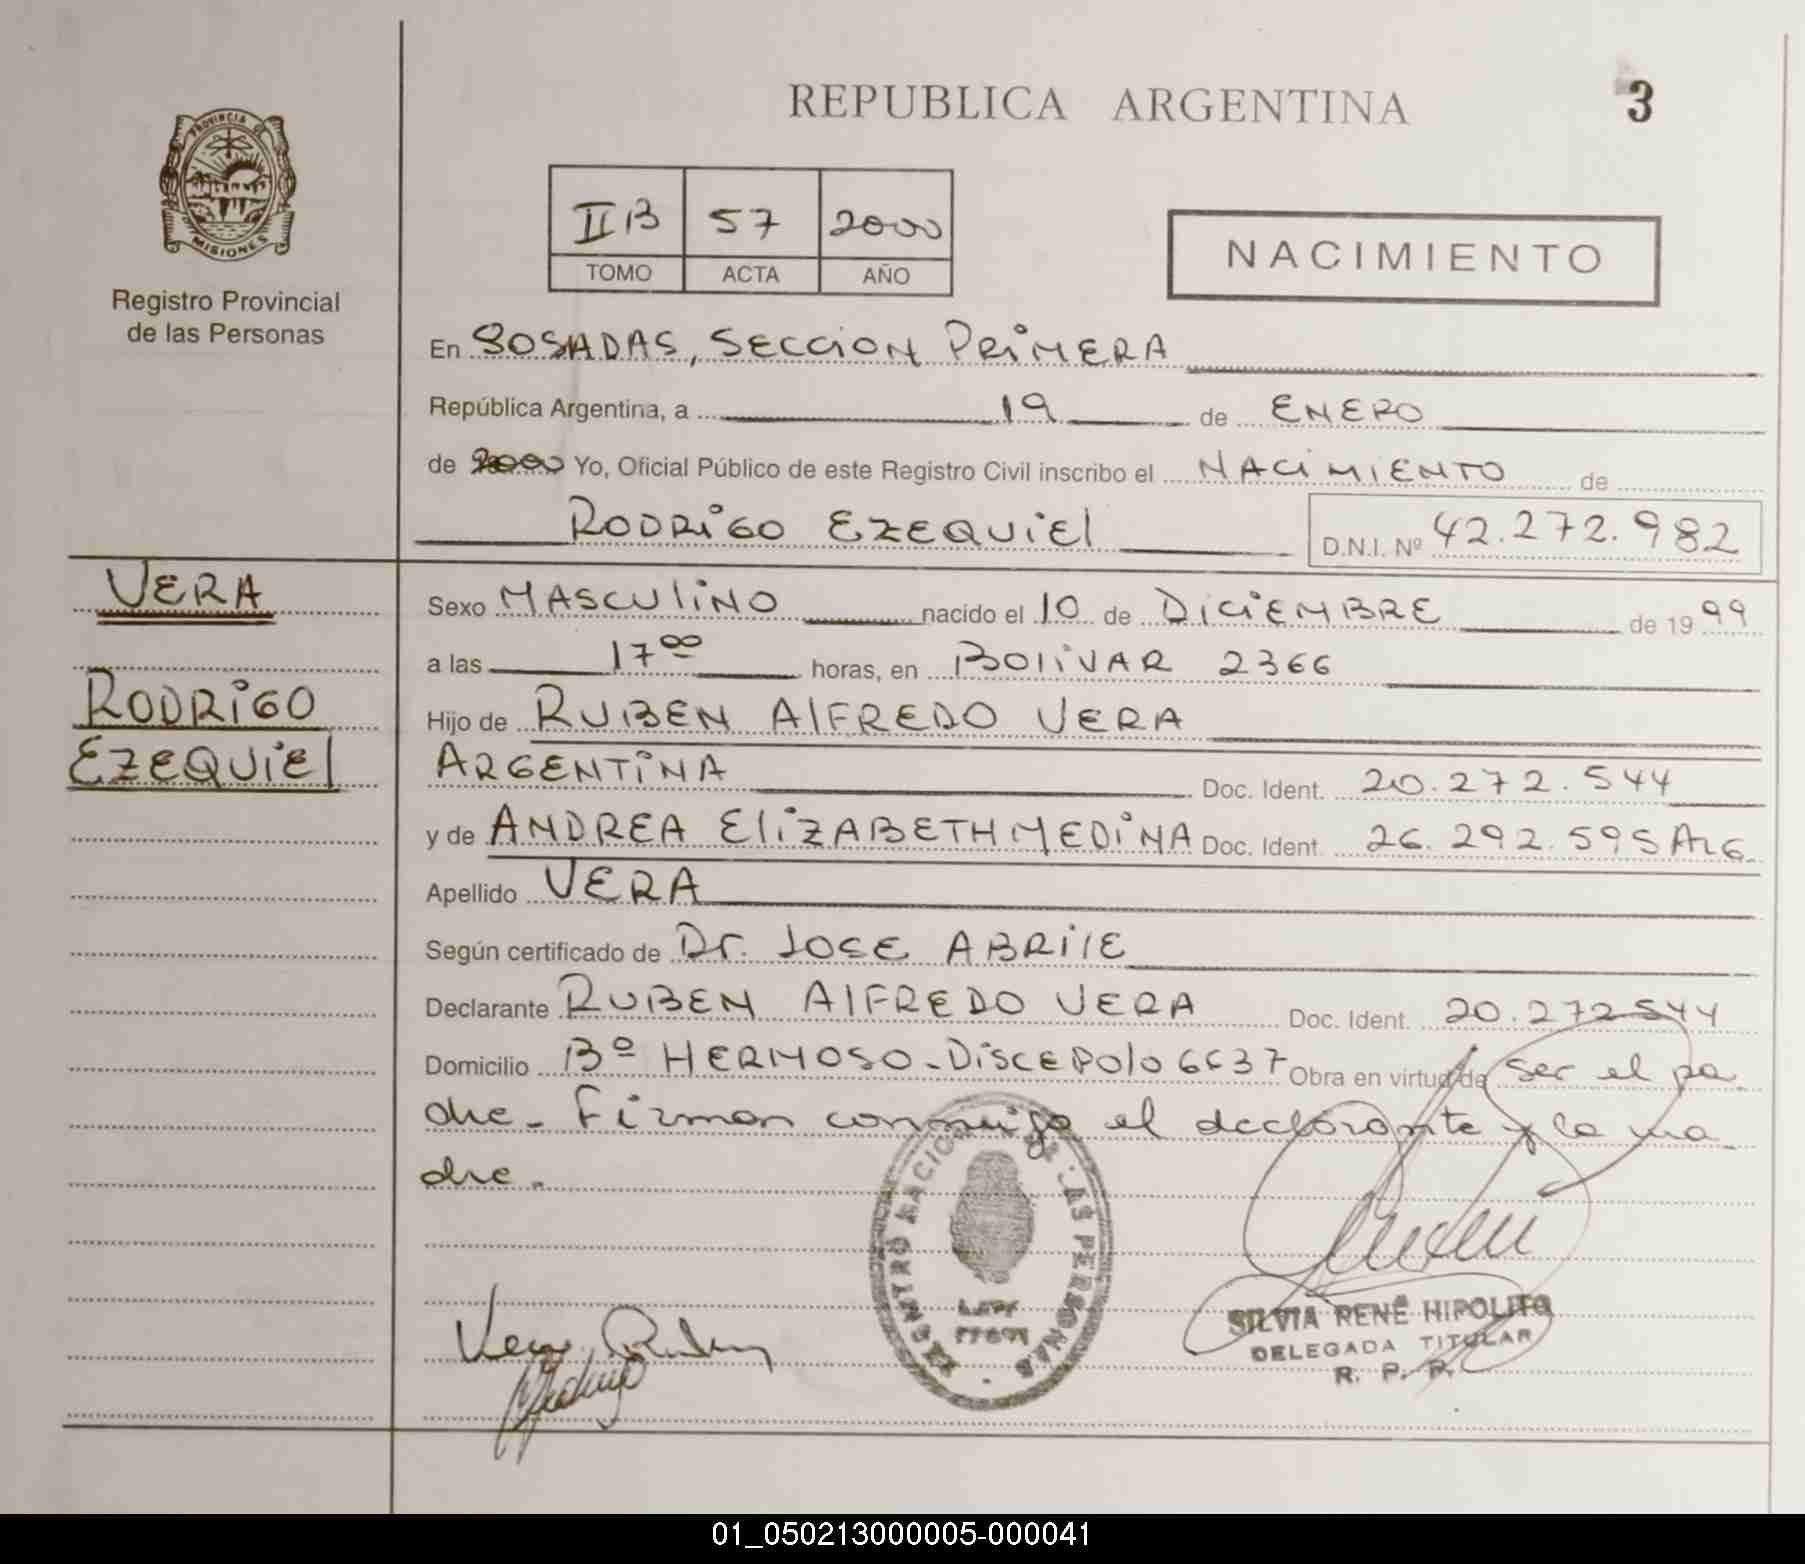 REPUBLICA ARGENTINA
3
PROVINCIA DE
MISIONES
Registro Provincial
de las Personas
II B 57 2000
TOMO ACTA AÑO
NACIMIENTO
En POSADAS, SECCION PRIMERA
República Argentina, a 19 de ENERO
de 2000 Yo, Oficial Público de este Registro Civil inscribo el NACIMIENTO de
RODRIGO EZEQUIEL D.N.I. Nº 42.272.982
VERA
RODRIGO
EZEQUIEL
Sexo MASCULINO nacido el 10 de DICIEMBRE de 19 99
a las 17 00 horas, en BOLIVAR 2366
Hijo de RUBEN ALFREDO VERA
ARGENTINA Doc. Ident. 20.272.544
y de ANDREA ELIZABETH MEDINA Doc. Ident. 26.292.595 ARG.
Apellido VERA
Según certificado de Dr. JOSE ABRILE
Declarante RUBEN ALFREDO VERA Doc. Ident. 20.272544
Domicilio Bº HERMOSO-DISCEPOLO 6637 Obra en virtud de ser el pa
dre. Firman conmigo el declarante y la ma
dre.
LAS PERSONAS
Vera Ruben
Medina
SILVIA RENÉ HIPOLITO
DELEGADA TITULAR
R. P. P.
01_050213000005-000041